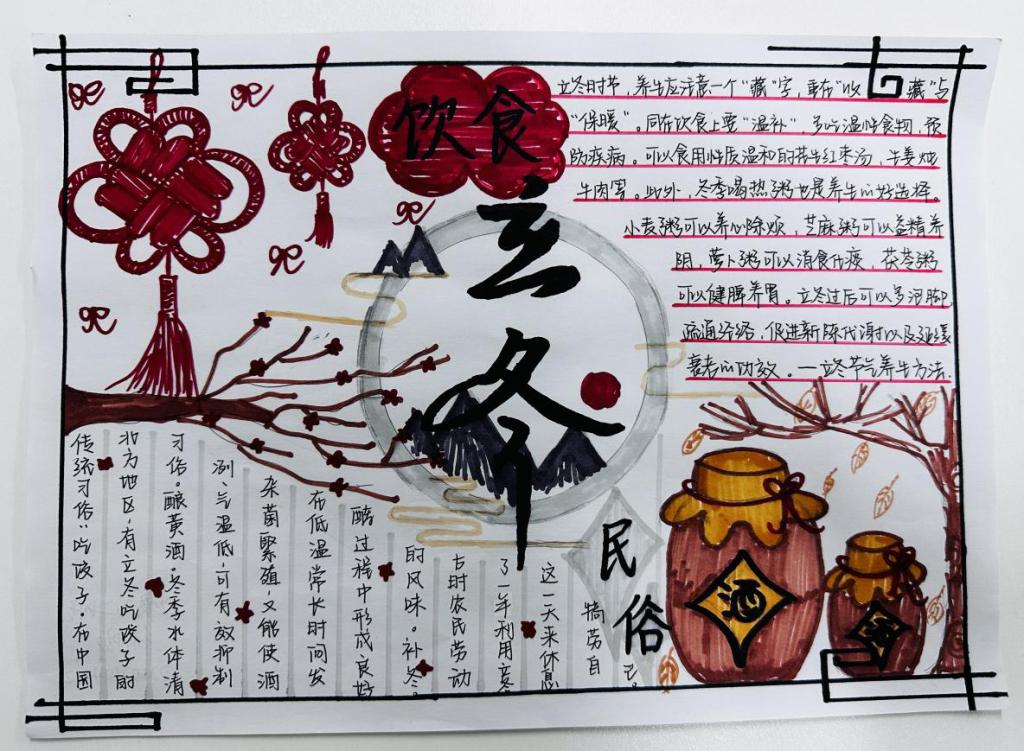 饮食
立冬
立冬时节，养生应注意一个"藏"字，重在"收藏"与
"保暖"。同在饮食上要"温补"，多吃温性食物，预
防疾病。可以食用性质温和的花生红枣汤，生姜炖
牛肉等。此外，冬季喝热粥也是养生的好选择。
小麦粥可以养心除烦，芝麻粥可以益精养
阴，萝卜粥可以消食化痰，茯苓粥
可以健脾养胃。立冬过后可以多泡脚，
疏通经络，促进新陈代谢以及延缓
衰老的功效。—立冬节气养生方法.
民俗
传统习俗"吃饺子"在中国
北方地区，有立冬吃饺子的
习俗。酿黄酒。冬季水体清
冽、气温低，可有效抑制
杂菌繁殖，又能使酒
在低温常长时间发
酵过程中形成良好
的风味。补冬。
古时农民劳动
了一年利用立冬
这一天来休息
犒劳自
己。
酒